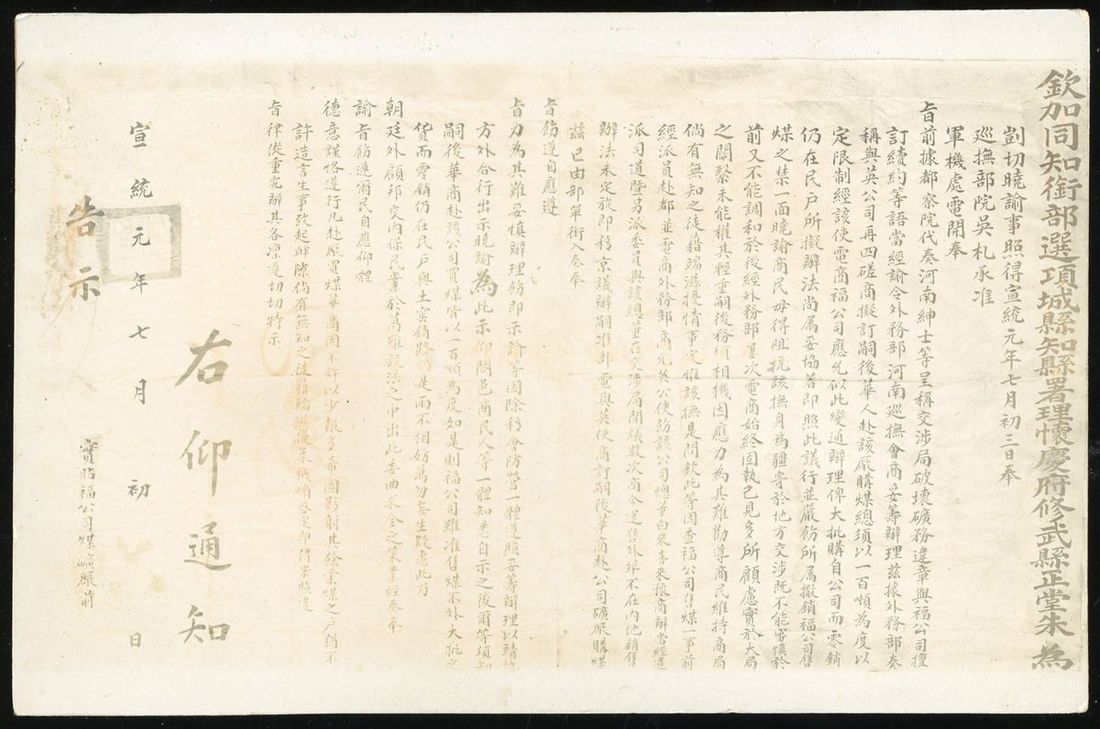 欽加同知銜部選項城縣知縣署理懷慶府修武縣正堂朱 為
剴切曉諭事照得宣統元年七月初三日奉
巡撫部院吳札承准
軍機處電開奉
旨前據都察院代奏河南紳士等呈稱交涉局破壞礦務違章與福公司擅
訂續約等語當經諭令外務部河南巡撫會商妥籌辦理茲據外務部奏
稱與英公司再四磋商擬訂嗣後華人赴該廠購煤總須以一百噸為度以
定限制經該使電商福公司應允似此變通辦理俾大批購自公司而零銷
仍在民戶所擬辦法尚屬妥協著即照此議行並嚴飭所屬撤銷福公司售
煤之禁一面曉諭商民毋得阻抗該撫身為疆寄於地方交涉既不能審慎於
前又不能調和於後經外務部屢次電商始終固執己見多所顧慮實於大局
之關繫未能權其輕重嗣後務須相機因應力為其難勸導商民維持商局
倘有無知之徒藉端滋擾情事定惟該撫是問欽此等因查福公司售煤一事前
經派員赴都並電商外務部商允英公使飭該公司總董白萊喜來豫商辦當經遴
派司道暨另派委員與該總董在交涉局開議數次商令是售外埠不在內地銷售
辦法未定旋即移京議辦嗣准部電與英使商訂嗣後華商赴公司礦廠購煤
茲已由部單銜入奏奉
旨飭遵自應遵
旨力為其難妥慎辦理飭即示諭等因除移會防營一體遵照妥籌辦理以靖地
方外合行出示曉諭為此示仰闔邑商民人等一體知悉自示之後爾等須知
嗣後華商赴該公司買煤皆以一百噸為度如是則福公司雖准售煤不外大批之
貨而零銷仍在民戶與土窰銷路仍是兩不相妨萬勿妄生疑慮此乃
朝廷外顧邦交內保民業於萬難設法之中出此委曲求全之策業經奏奉
諭旨飭遵爾民自應仰體
德意謹恪遵行凡赴廠買煤華商固不許以少報多希圖影射其餘業煤之戶倘不
許造言生事致起衅隙倘有無知之徒藉端滋擾定即備案照違
旨律從重究辦其各凜遵切切特示
右仰通知
宣統元年七月初 日
告示
實貼福公司煤礦廠前